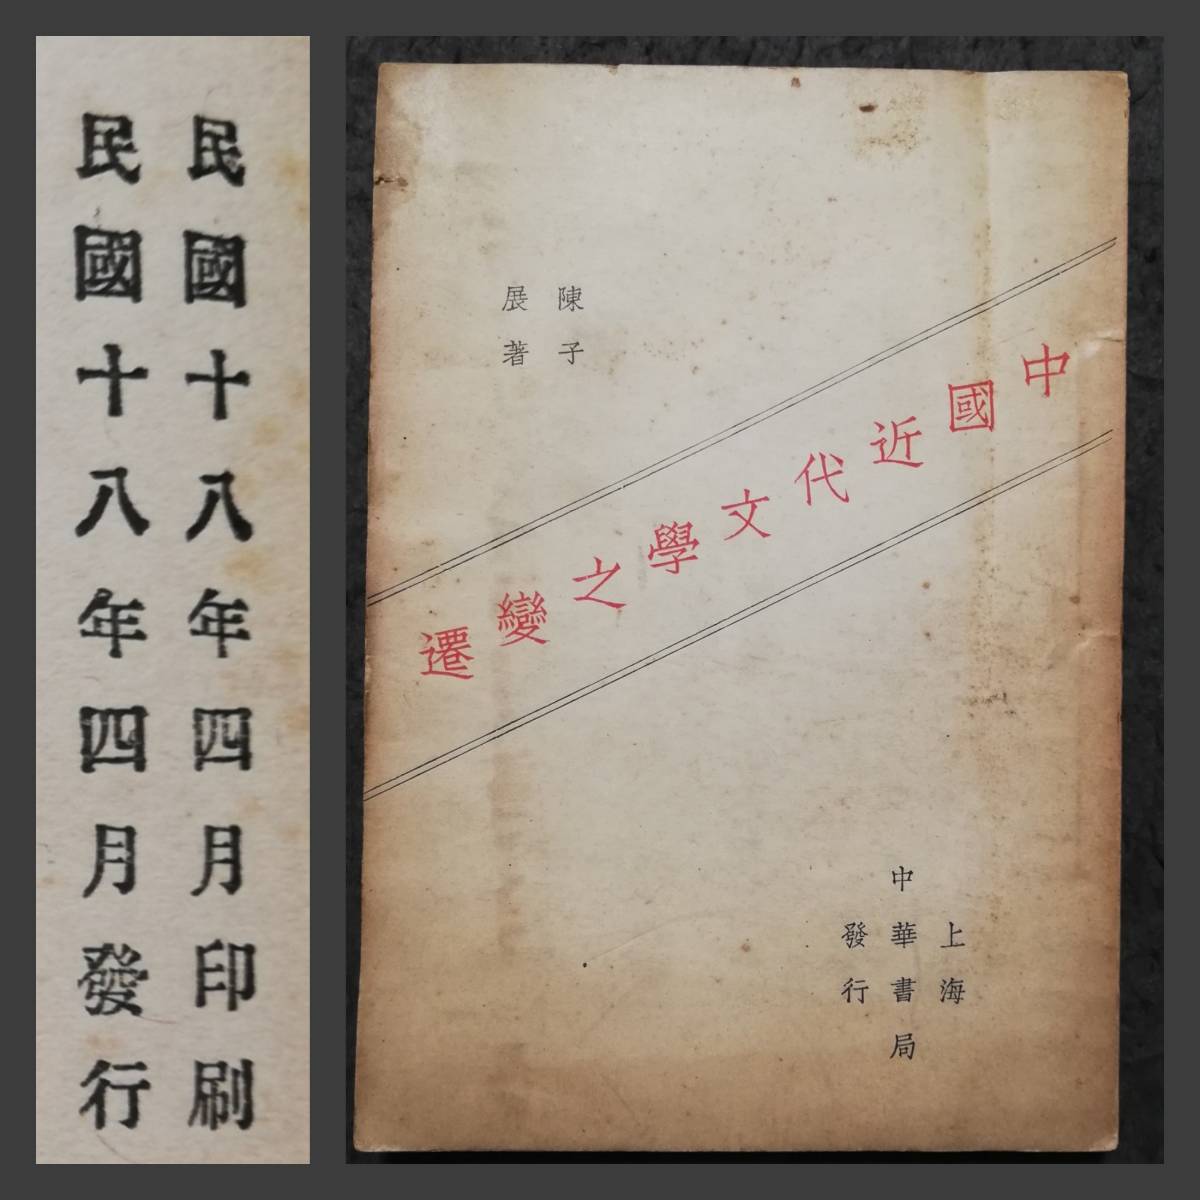 民國十八年四月印刷
民國十八年四月發行
陳子
展著
中國近代文學之變遷
上海
中華書局
發行